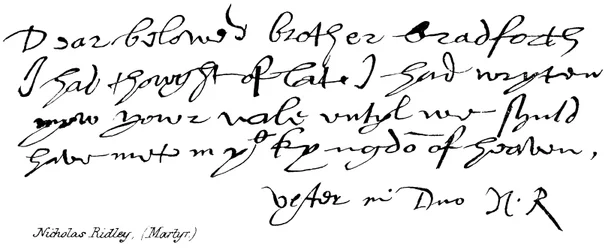 Dear beloved brother bradforth
I had thowght of late I had wryten
yow yowr vale untyl we shuld
have mete in yᵉ kyngdō of heaven,
vester in Dno N. R
Nicholas Ridley, (Martyr.)